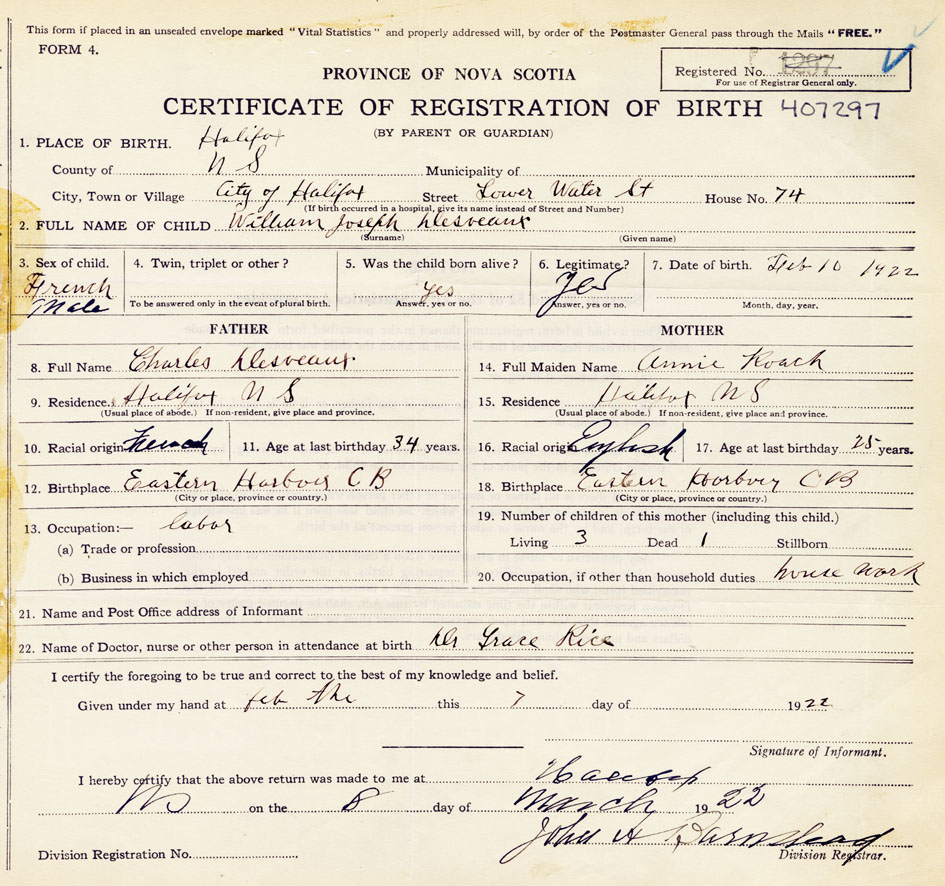 This form if placed in an unsealed envelope marked "Vital Statistics" and properly addressed will, by order of the Postmaster General pass through the Mails "FREE."
FORM 4.
Registered No. 1297
For use of Registrar General only.
PROVINCE OF NOVA SCOTIA
CERTIFICATE OF REGISTRATION OF BIRTH 407297
(BY PARENT OR GUARDIAN)
1. PLACE OF BIRTH. Halifax
County of N S Municipality of
City, Town or Village City of Halifax Street Lower Water St House No. 74
(If birth occurred in a hospital, give its name instead of Street and Number)
2. FULL NAME OF CHILD William Joseph Desveaux
(Surname) (Given name)
3. Sex of child. 4. Twin, triplet or other? 5. Was the child born alive? 6. Legitimate? 7. Date of birth. Feb 10 1922
French yes Yes
Male To be answered only in the event of plural birth. Answer, yes or no. Answer, yes or no. Month, day, year.
FATHER MOTHER
8. Full Name Charles Desveaux 14. Full Maiden Name Annie Roach
9. Residence. Halifax N S 15. Residence Halifax NS
(Usual place of abode.) If non-resident, give place and province. (Usual place of abode.) If non-resident, give place and province.
10. Racial origin French 11. Age at last birthday 34 years. 16. Racial origin English 17. Age at last birthday 25 years.
12. Birthplace Eastern Harbour C B 18. Birthplace Eastern Harbour C B
(City or place, province or country.) (City or place, province or country.)
13. Occupation:— labor 19. Number of children of this mother (including this child.)
(a) Trade or profession Living 3 Dead 1 Stillborn
(b) Business in which employed 20. Occupation, if other than household duties house work
21. Name and Post Office address of Informant
22. Name of Doctor, nurse or other person in attendance at birth Dr Grace Rice
I certify the foregoing to be true and correct to the best of my knowledge and belief.
Given under my hand at feb the this 7 day of 1922
Signature of Informant.
I hereby certify that the above return was made to me at Halifax
NS on the 8 day of March 1922
John A Barnstead
Division Registration No. Division Registrar.